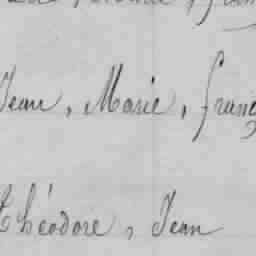 Jean, Marie, franç
Théodore, Jean